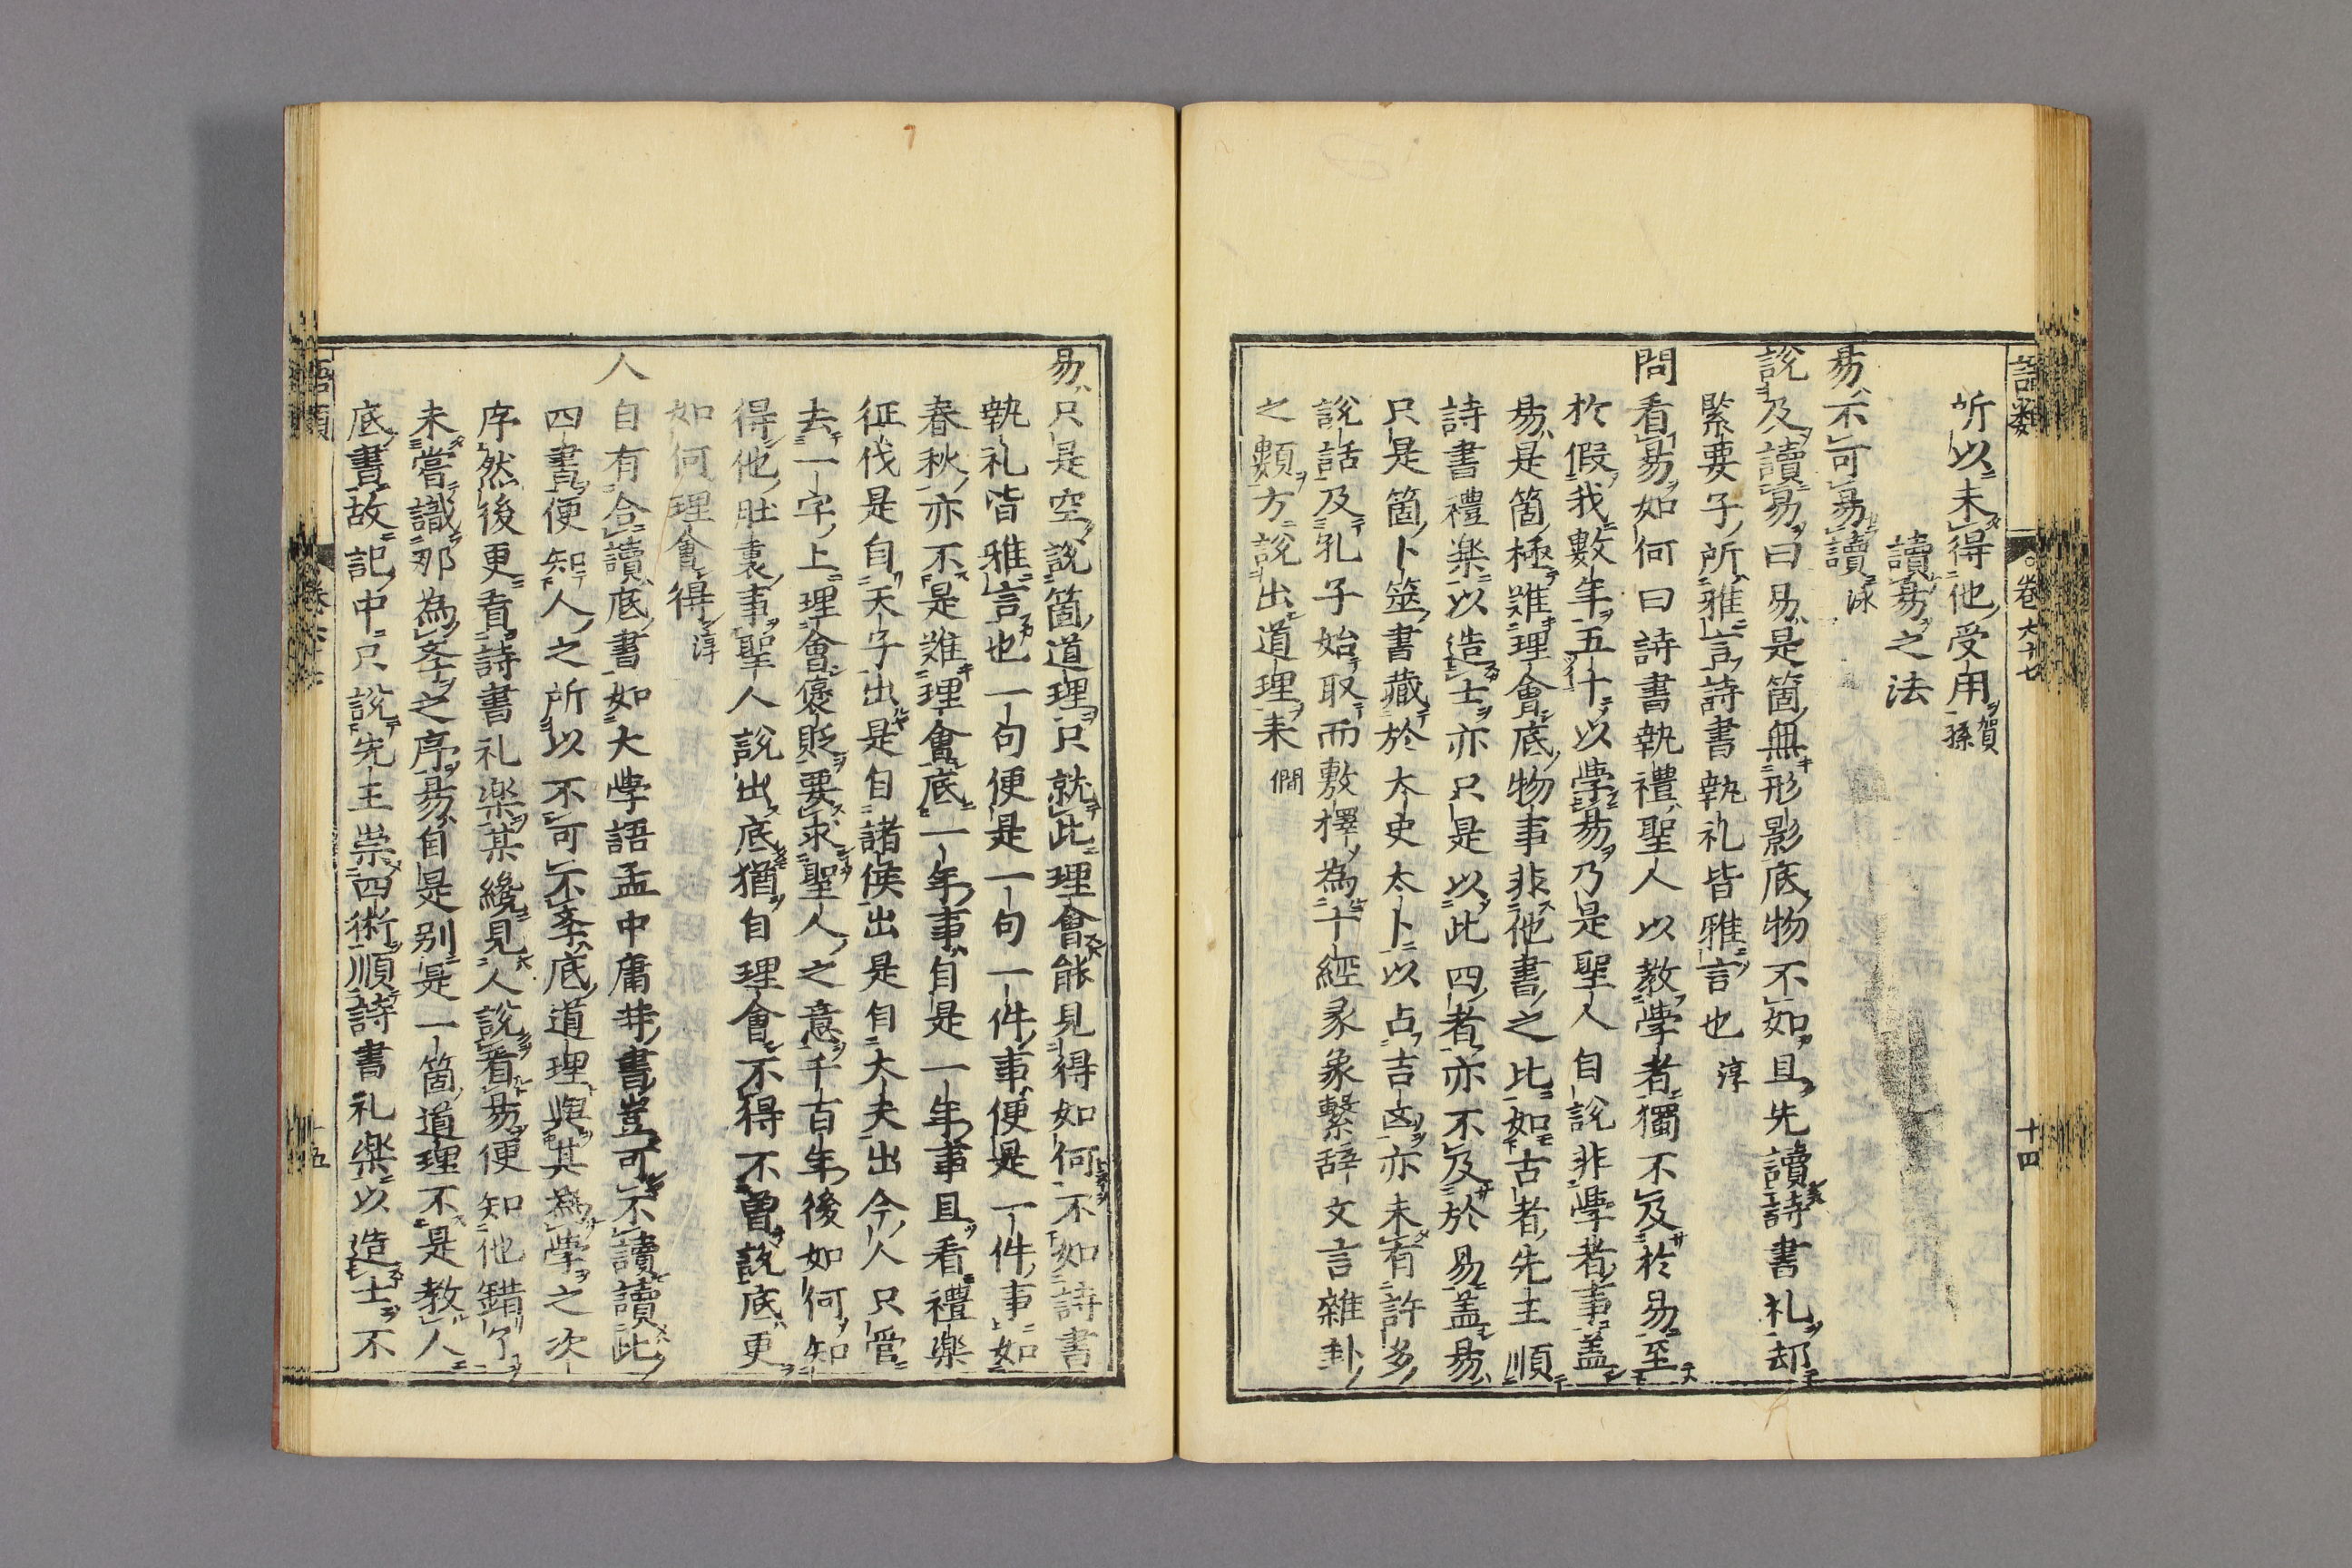 語類 卷六十七 十四
所以未得他受用賀孫
讀易之法
易不可易讀泳
說及讀易曰易是箇無形影底物不如且先讀詩書礼却
緊要子所雅言詩書執礼皆雅言也淳
問看易如何曰詩書執禮聖人以教學者獨不及於易至
於假我數年五十以學易乃是聖人自說非學者事蓋
易是箇極難理會底物事非他書之比如古者先王順
詩書禮楽以造士亦只是以此四者亦不及於易盖易
只是箇卜筮書藏於太史太卜以占吉凶亦未有許多
說話及孔子始取而敷擇為十經彖象繫辞文言雜卦
之類方說出道理来僩
易只是空說箇道理只就此理會能見得如何不如詩書
執礼皆雅言也一句便是一句一件事便是一件事如
春秋亦不是難理會底一年事自是一年事且看禮楽
征伐是自天子出是自諸侯出是自大夫出今人只管
去一字上理會褒貶要求聖人之意千百年後如何知
得他肚裏事聖人說出底猶自理會不得不曽說底更
如何理會得淳
人自有合讀底書如大學語孟中庸䒭書豈可不讀讀此
四書便知人之所以不可不斈底道理與其為學之次
序然後更看詩書礼楽某纔見人說看易便知他錯了
未嘗識那為斈之序易自是別是一箇道理不是教人
底書故記中只說先王崇四術順詩書礼楽以造士不
語類 五